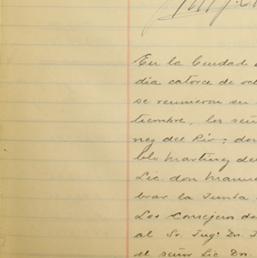 En la Ciudad
dia catorce de oc
se reunieron en
tiembre, los señ
rey del Rio; don
blo Martinez del
Lic. don Manue
brar la Junta
Los Consejeros de
al Sr. Ing. Dn. J
el señor Lic Dn.